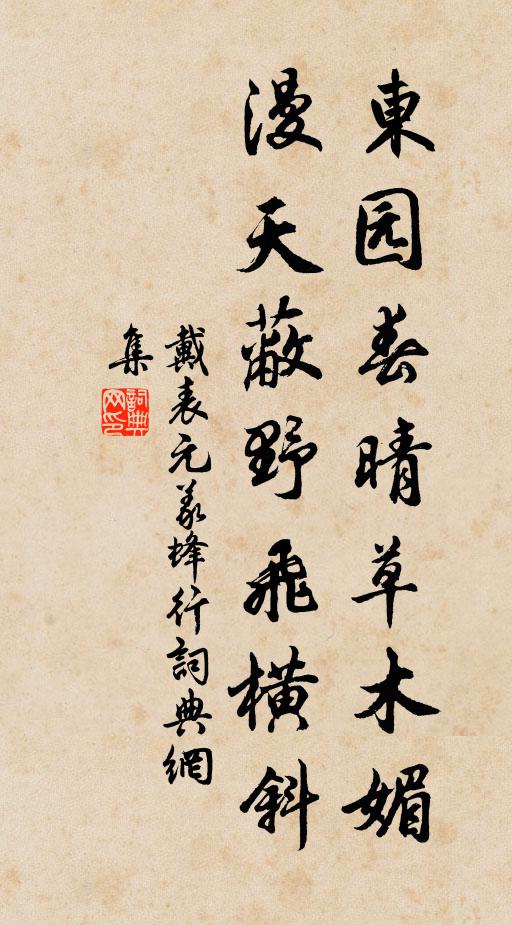 東园春晴草木媚
漫天蔽野飛橫斜
戴表元義蜂行詞典網
集
詞典
网印